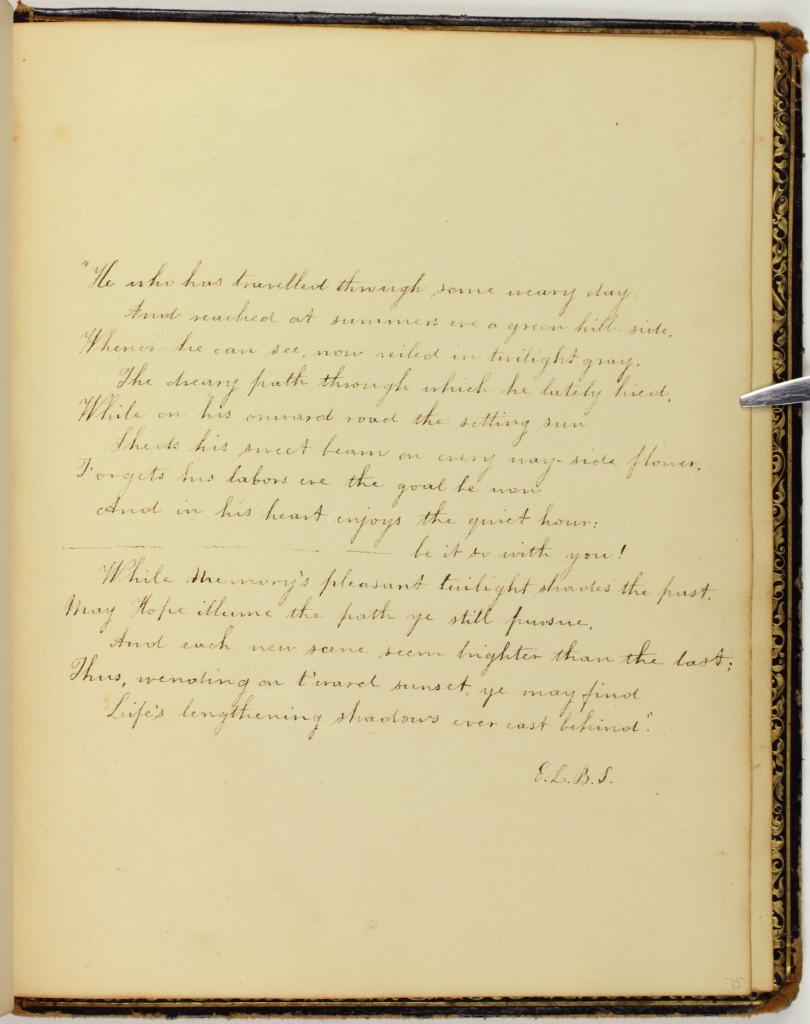 "He who has travelled through some weary day.
And reached at summers eve a green hill-side,
Whence he can see, now veiled in twilight gray,
The dreary path through which he lately hied,
While on his onward road the setting sun
Sheds his sweet beam on every way-side flower,
Forgets his labors ere the goal be won
And in his heart enjoys the quiet hour:
be it so with you!
While Memory's pleasant twilight shades the past,
May Hope illume the path ye still pursue,
And each new scene seem brighter than the last;
Thus, wending on t'ward sunset, ye may find
Life's lengthening shadows ever cast behind".
E. L. B. S.
75